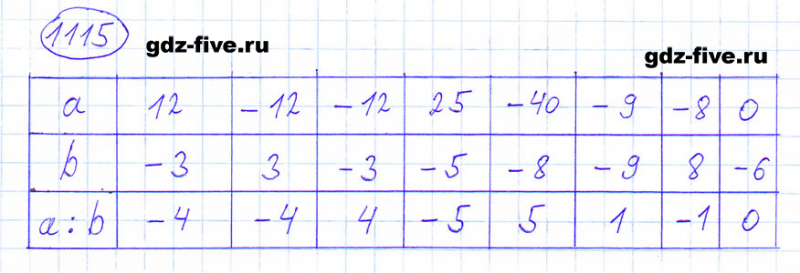 1115
gdz-five.ru
gdz-five.ru
a 12 -12 -12 25 -40 -9 -8 0
b -3 3 -3 -5 -8 -9 8 -6
a:b -4 -4 4 -5 5 1 -1 0